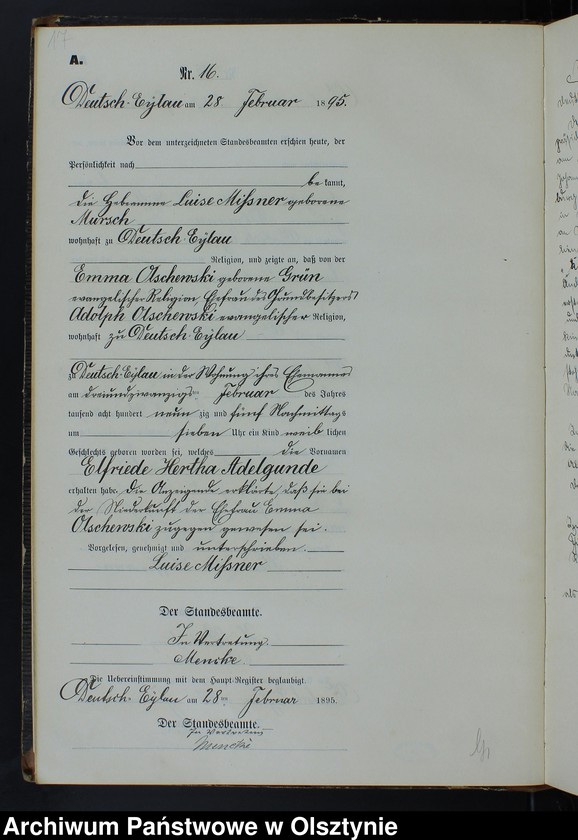 17
A.
Nr. 16.
Deutsch-Eylau am 28 Februar 1895.
Vor dem unterzeichneten Standesbeamten erschien heute, der
Persönlichkeit nach
bekannt,
die Hebeamme Luise Missner geborene
Mursch
wohnhaft zu Deutsch-Eylau
Religion, und zeigte an, daß von der
Emma Olschewski geborene Grün
evangelischer Religion, Ehefrau des Grundbesitzers
Adolph Olschewski evangelischer Religion,
wohnhaft zu Deutsch-Eylau
zu Deutsch-Eylau in der Wohnung ihres Ehemannes
am dreiundzwanzigsten Februar des Jahres
tausend acht hundert neunzig und fünf Nachmittags
um sieben Uhr ein Kind weiblichen
Geschlechts geboren worden sei, welches die Vornamen
Elfriede Hertha Adelgunde
erhalten habe. Die Anzeigende erklärte, daß sie bei
der Niederkunft der Ehefrau Emma
Olschewski zugegen gewesen sei.
Vorgelesen, genehmigt und unterschrieben.
Luise Missner
Der Standesbeamte.
In Vertretung.
Mencke
Die Uebereinstimmung mit dem Haupt-Register beglaubigt
Deutsch-Eylau am 28ten Februar 1895.
Der Standesbeamte.
In Vertretung
Mencke
Archiwum Państwowe w Olsztynie